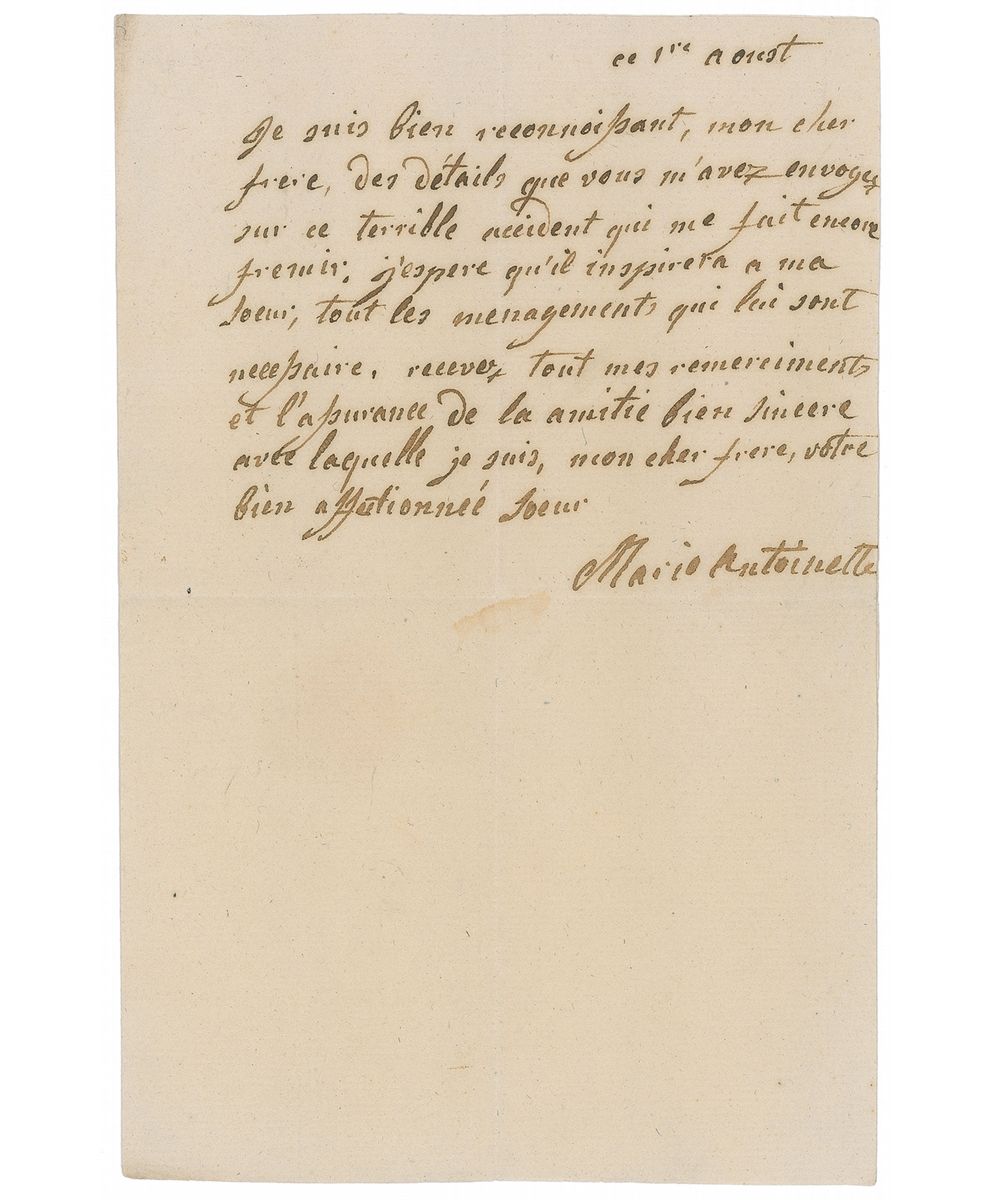 ce 1re aoust
Je suis bien reconnoissant, mon cher
frere, des détails que vous m'avez envoyez
sur ce terrible accident qui me fait encore
fremir, j'espere qu'il inspirera a ma
soeur, tout les menagements qui lui sont
necessaire. recevez tout mes remerciments
et l'assurance de la amitié bien sincere
avec laquelle je suis, mon cher frere, votre
bien affectionneé soeur
Marie Antoinette